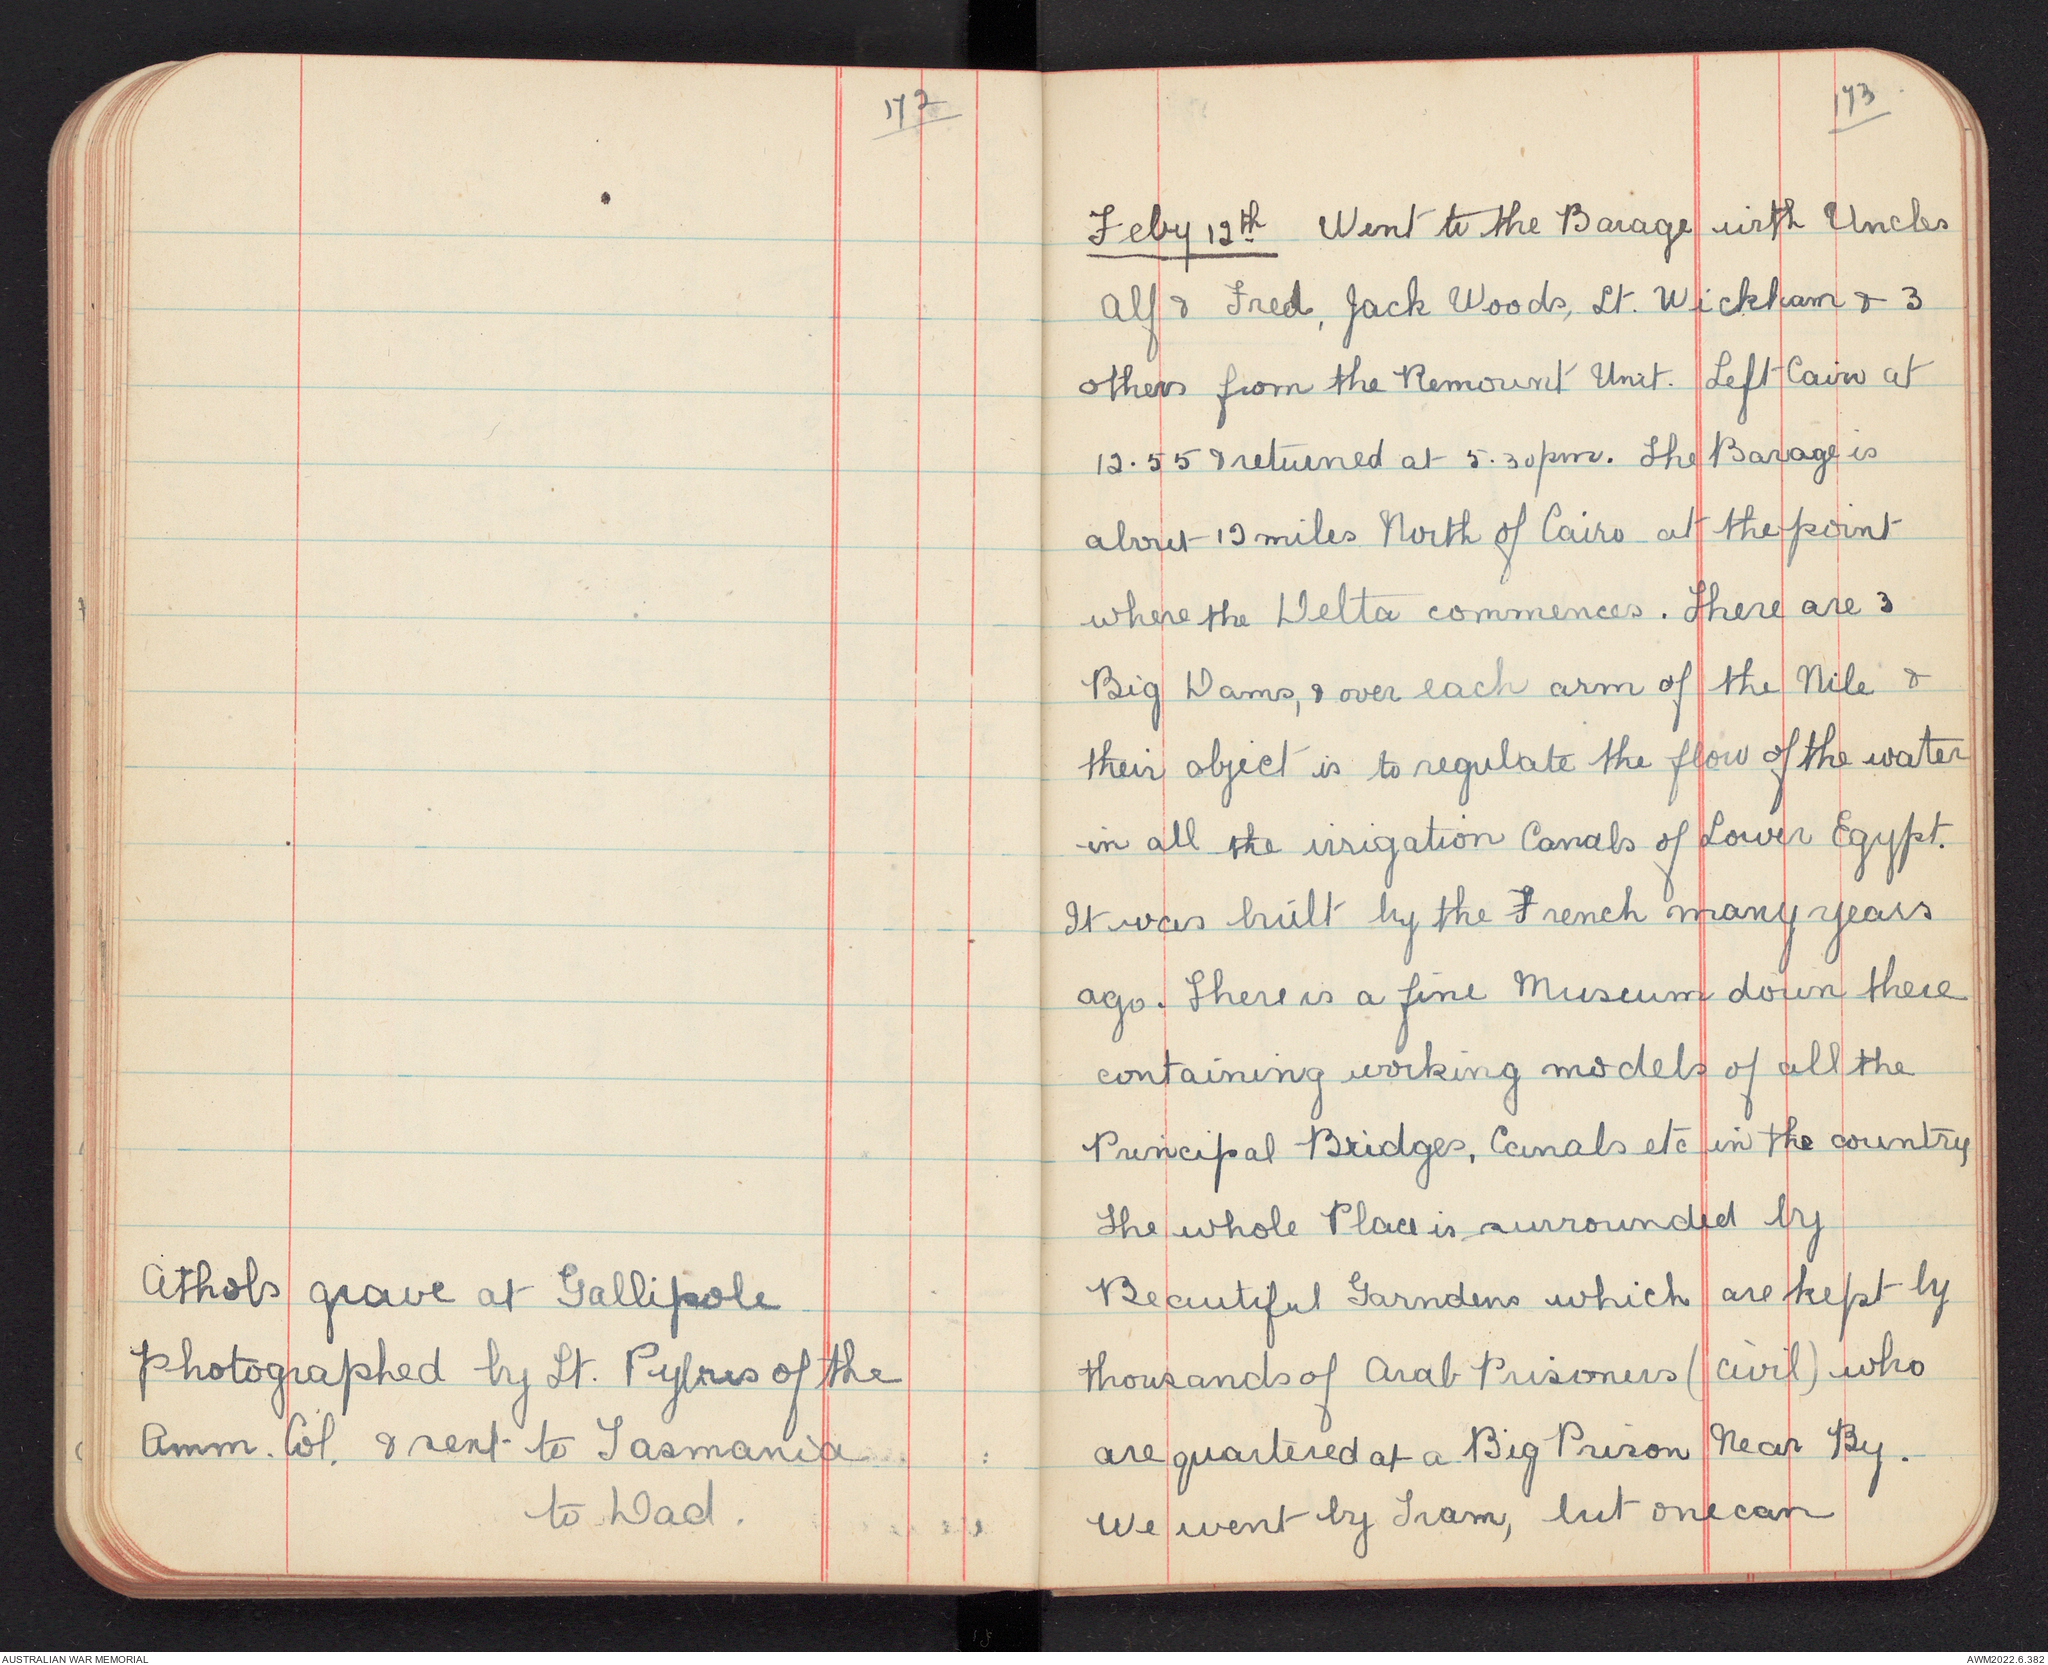 172
Athols grave at Gallipole
photographed by Lt. of the
Amm. Col. & sent to Tasmania
to Dad.
173
Feby 12th Went to the Barage with Uncles
Alf & Fred, Jack Woods, Lt. Wickham & 3
others from the Remount Unit. Left Cairo at
12.55 & returned at 5.30pm. The Barage is
about 12 miles North of Cairo at the point
where the Delta commences. There are 3
Big Dams, & over each arm of the Nile &
their object is to regulate the flow of the water
in all the irrigation Canals of Lower Egypt.
It was built by the French many years
ago. There is a fine Museum down there
containing working models of all the
Principal Bridges, Canals etc in the country
The whole Place is surrounded by
Beautiful Garndens which are kept by
thousands of Arab Prisoners (civil) who
are quartered at a Big Prison Near By.
We went by Tram, but one can
AUSTRALIAN WAR MEMORIAL
AWM2022.6.382